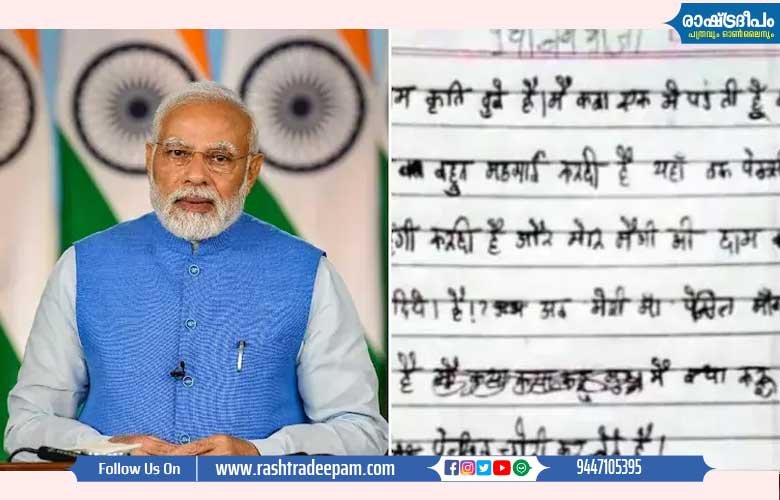 രാഷ്ട്രദീപം
പത്രവും ഓൺലൈനും
म कृति दुबे है। मैं कक्षा एक मे पडती हूँ
बहुत महगाई करदी है यहाँ तक
करदी है और मेरि मैगी भी दाम
दिये। है!? अब मेरी मा
है मै क्या करू
चोरी कर लेते है।
Follow Us On
www.rashtradeepam.com
9447105395